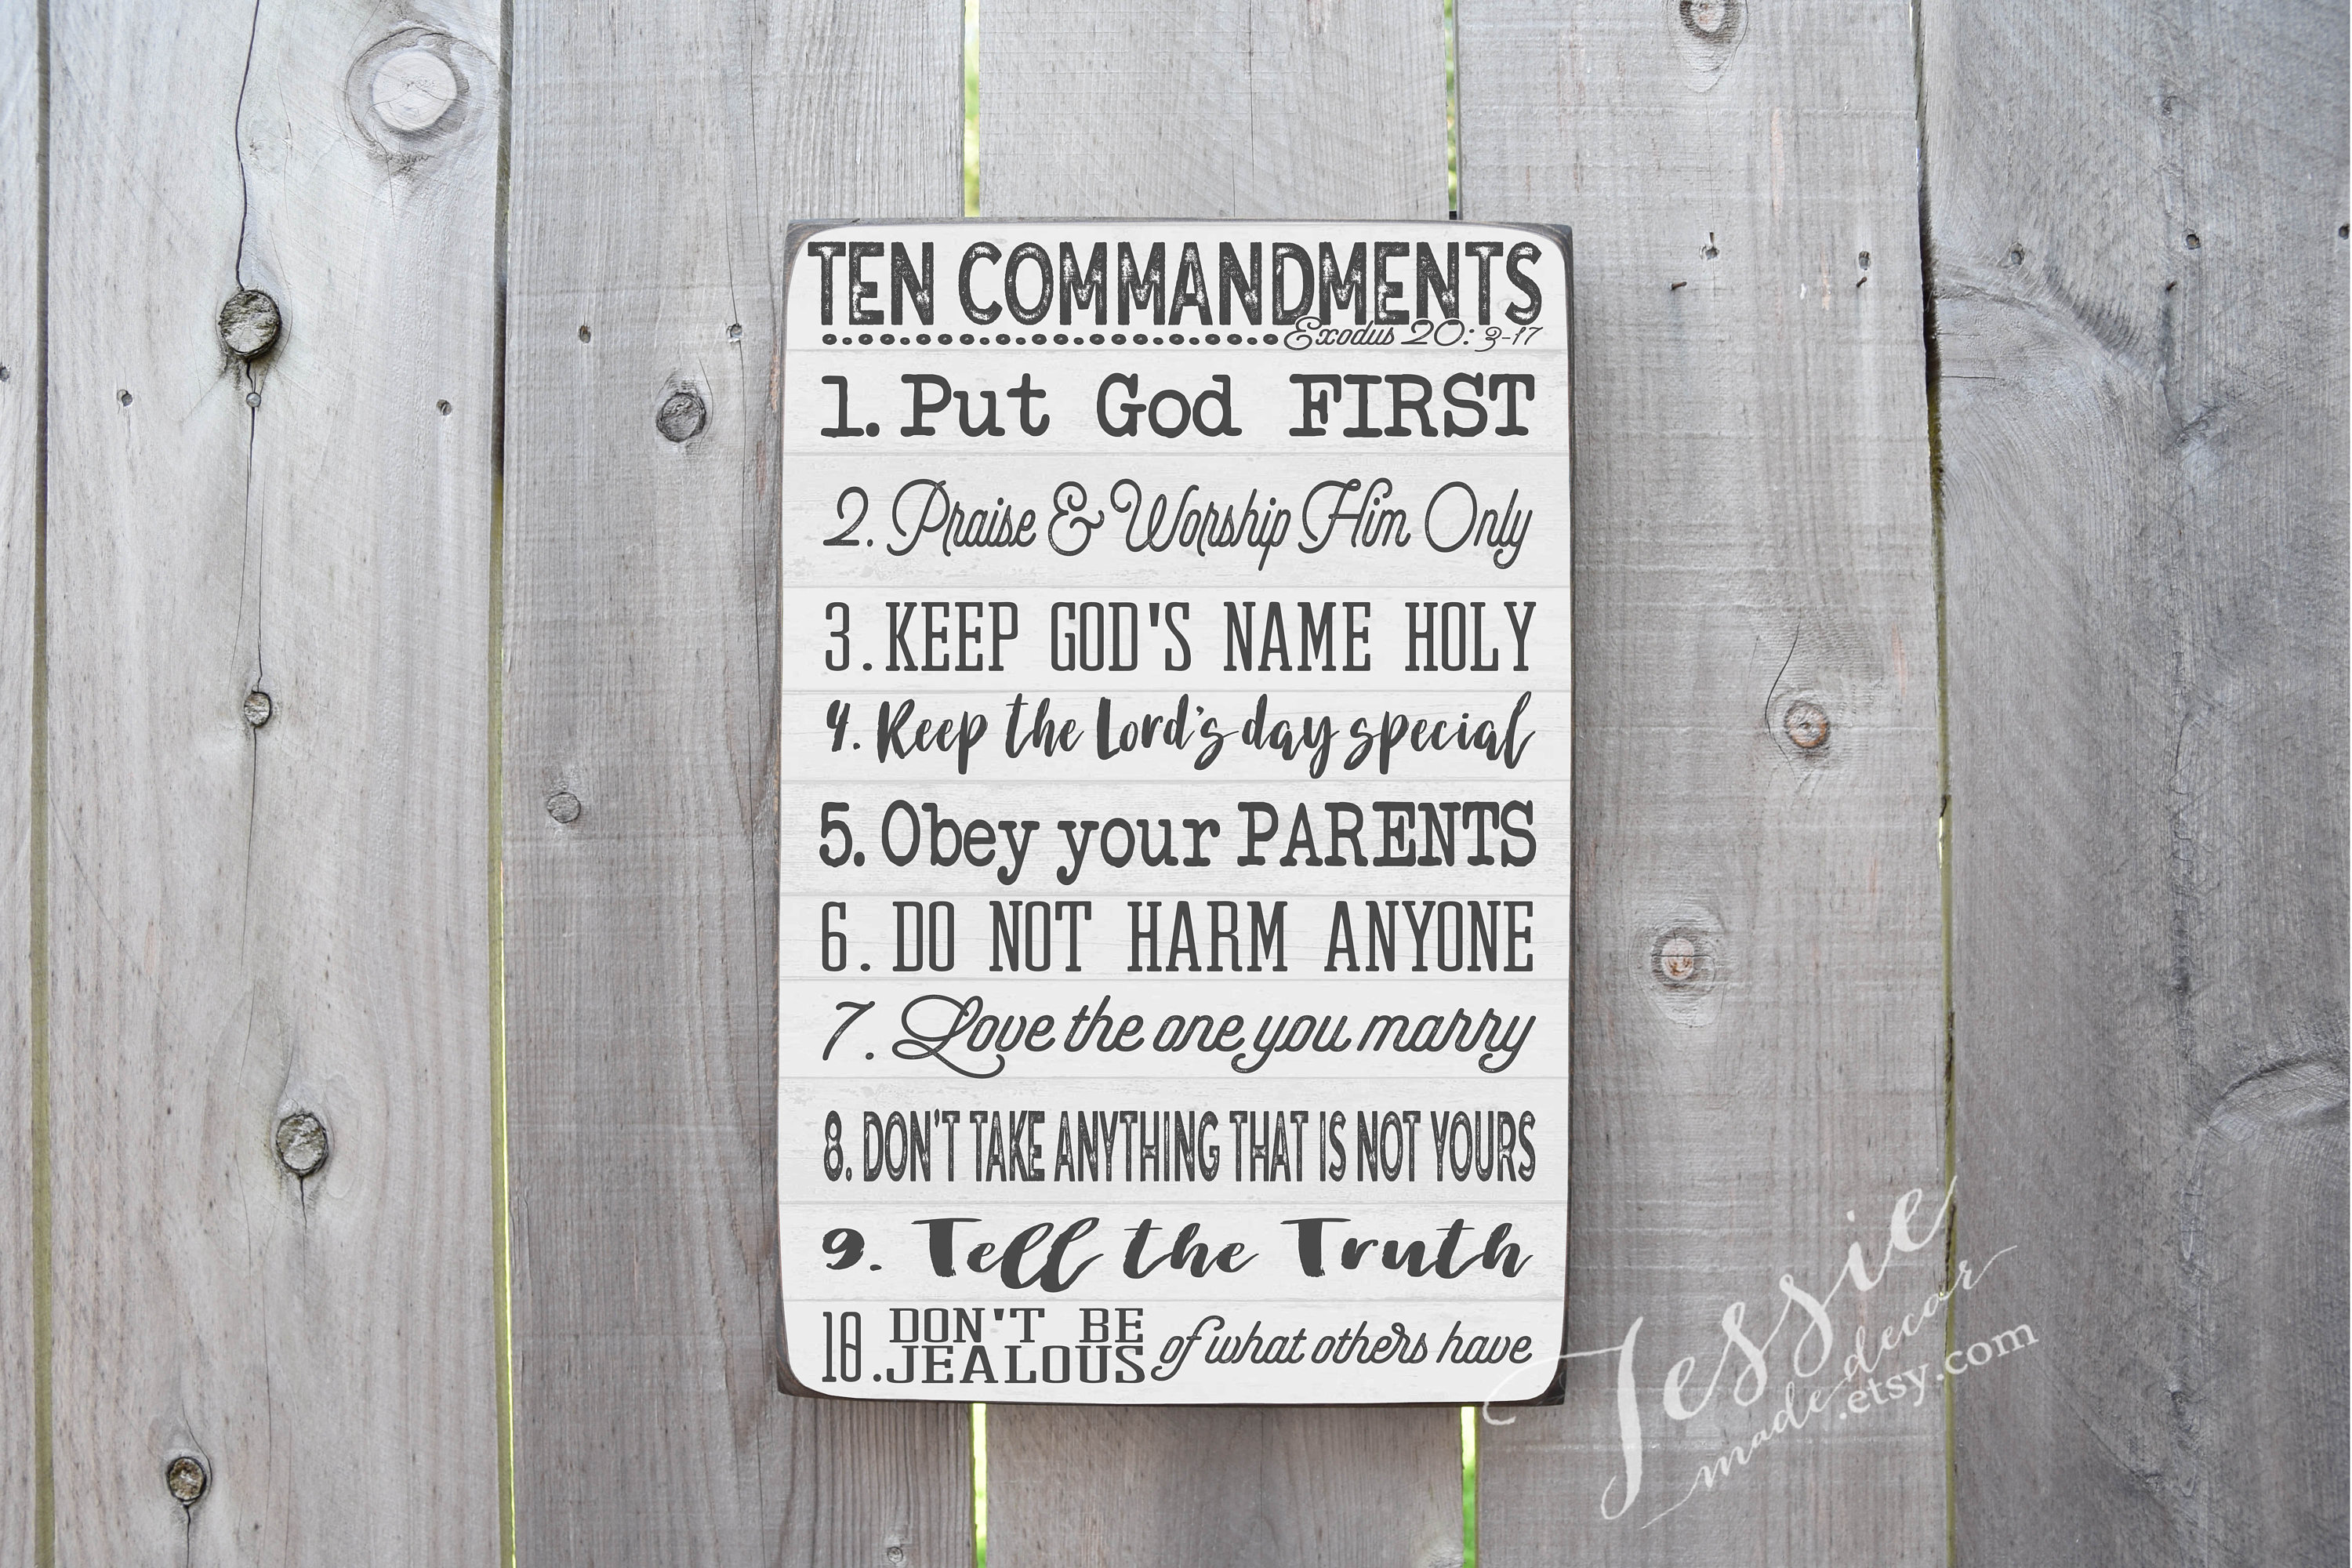 TEN COMMANDMENTS
Exodus 20: 3-17
1. Put God FIRST
2. Praise & Worship Him Only
3. KEEP GOD'S NAME HOLY
4. Keep the Lord's day special
5. Obey your PARENTS
6. DO NOT HARM ANYONE
7. Love the one you marry
8. DON'T TAKE ANYTHING THAT IS NOT YOURS
9. Tell the Truth
10. DON'T BE
JEALOUS of what others have
Jessie
made decor
.etsy.com